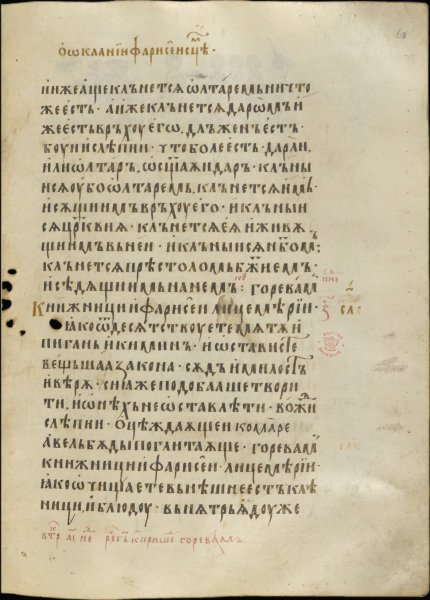 ѡ҆ ѡкланїи фарисеи сцѣ
и҆ иже аще кльнетсѧ ѡлтаремь ничто
же есть · а иже кльнетсѧ даромь и
же есть врьхоу его · длъжень есть ·
боуи и слѣпии · что болеесть · дар ли ·
или ѡлтар · ѡсщаѫи дар · клъны
исѧ оубо ѡлтаремь · клънетсѧ имь ·
и сѫщиимъ врьхоу его · и клъныи
сѧ црк҃виѧ · клънетсѧ еѧ и живѫ
щиимъ вь неи · и клъныисѧ нб҃ом ·
клънетсѧ прѣстоломь бж҃иемь ·
и сѣдѧщиимь на немь : горе вамь
книжници и фарисеи лицемѣрїи ·
ꙗко ѡдесѧтствоуете мѧтѫ и
пиганъ и киминъ · и ѡстависте
вещьшаа закона · сѫдъ и милость
и вѣрѫ · сиа же подобааше твори
ти · и ѡнѣхъ не ѡставлѣти · вожди
слѣпии · ѡцѣждаѫщеи комаре
а вельбѫды поглъщаѫще · горе вамь
книжници и фарисеи лицемѣрїи ·
ꙗко ѡчищаете вьнѣшнее стъклѣ
ници · и блюдоу · вьнѫтрьѫдоу же